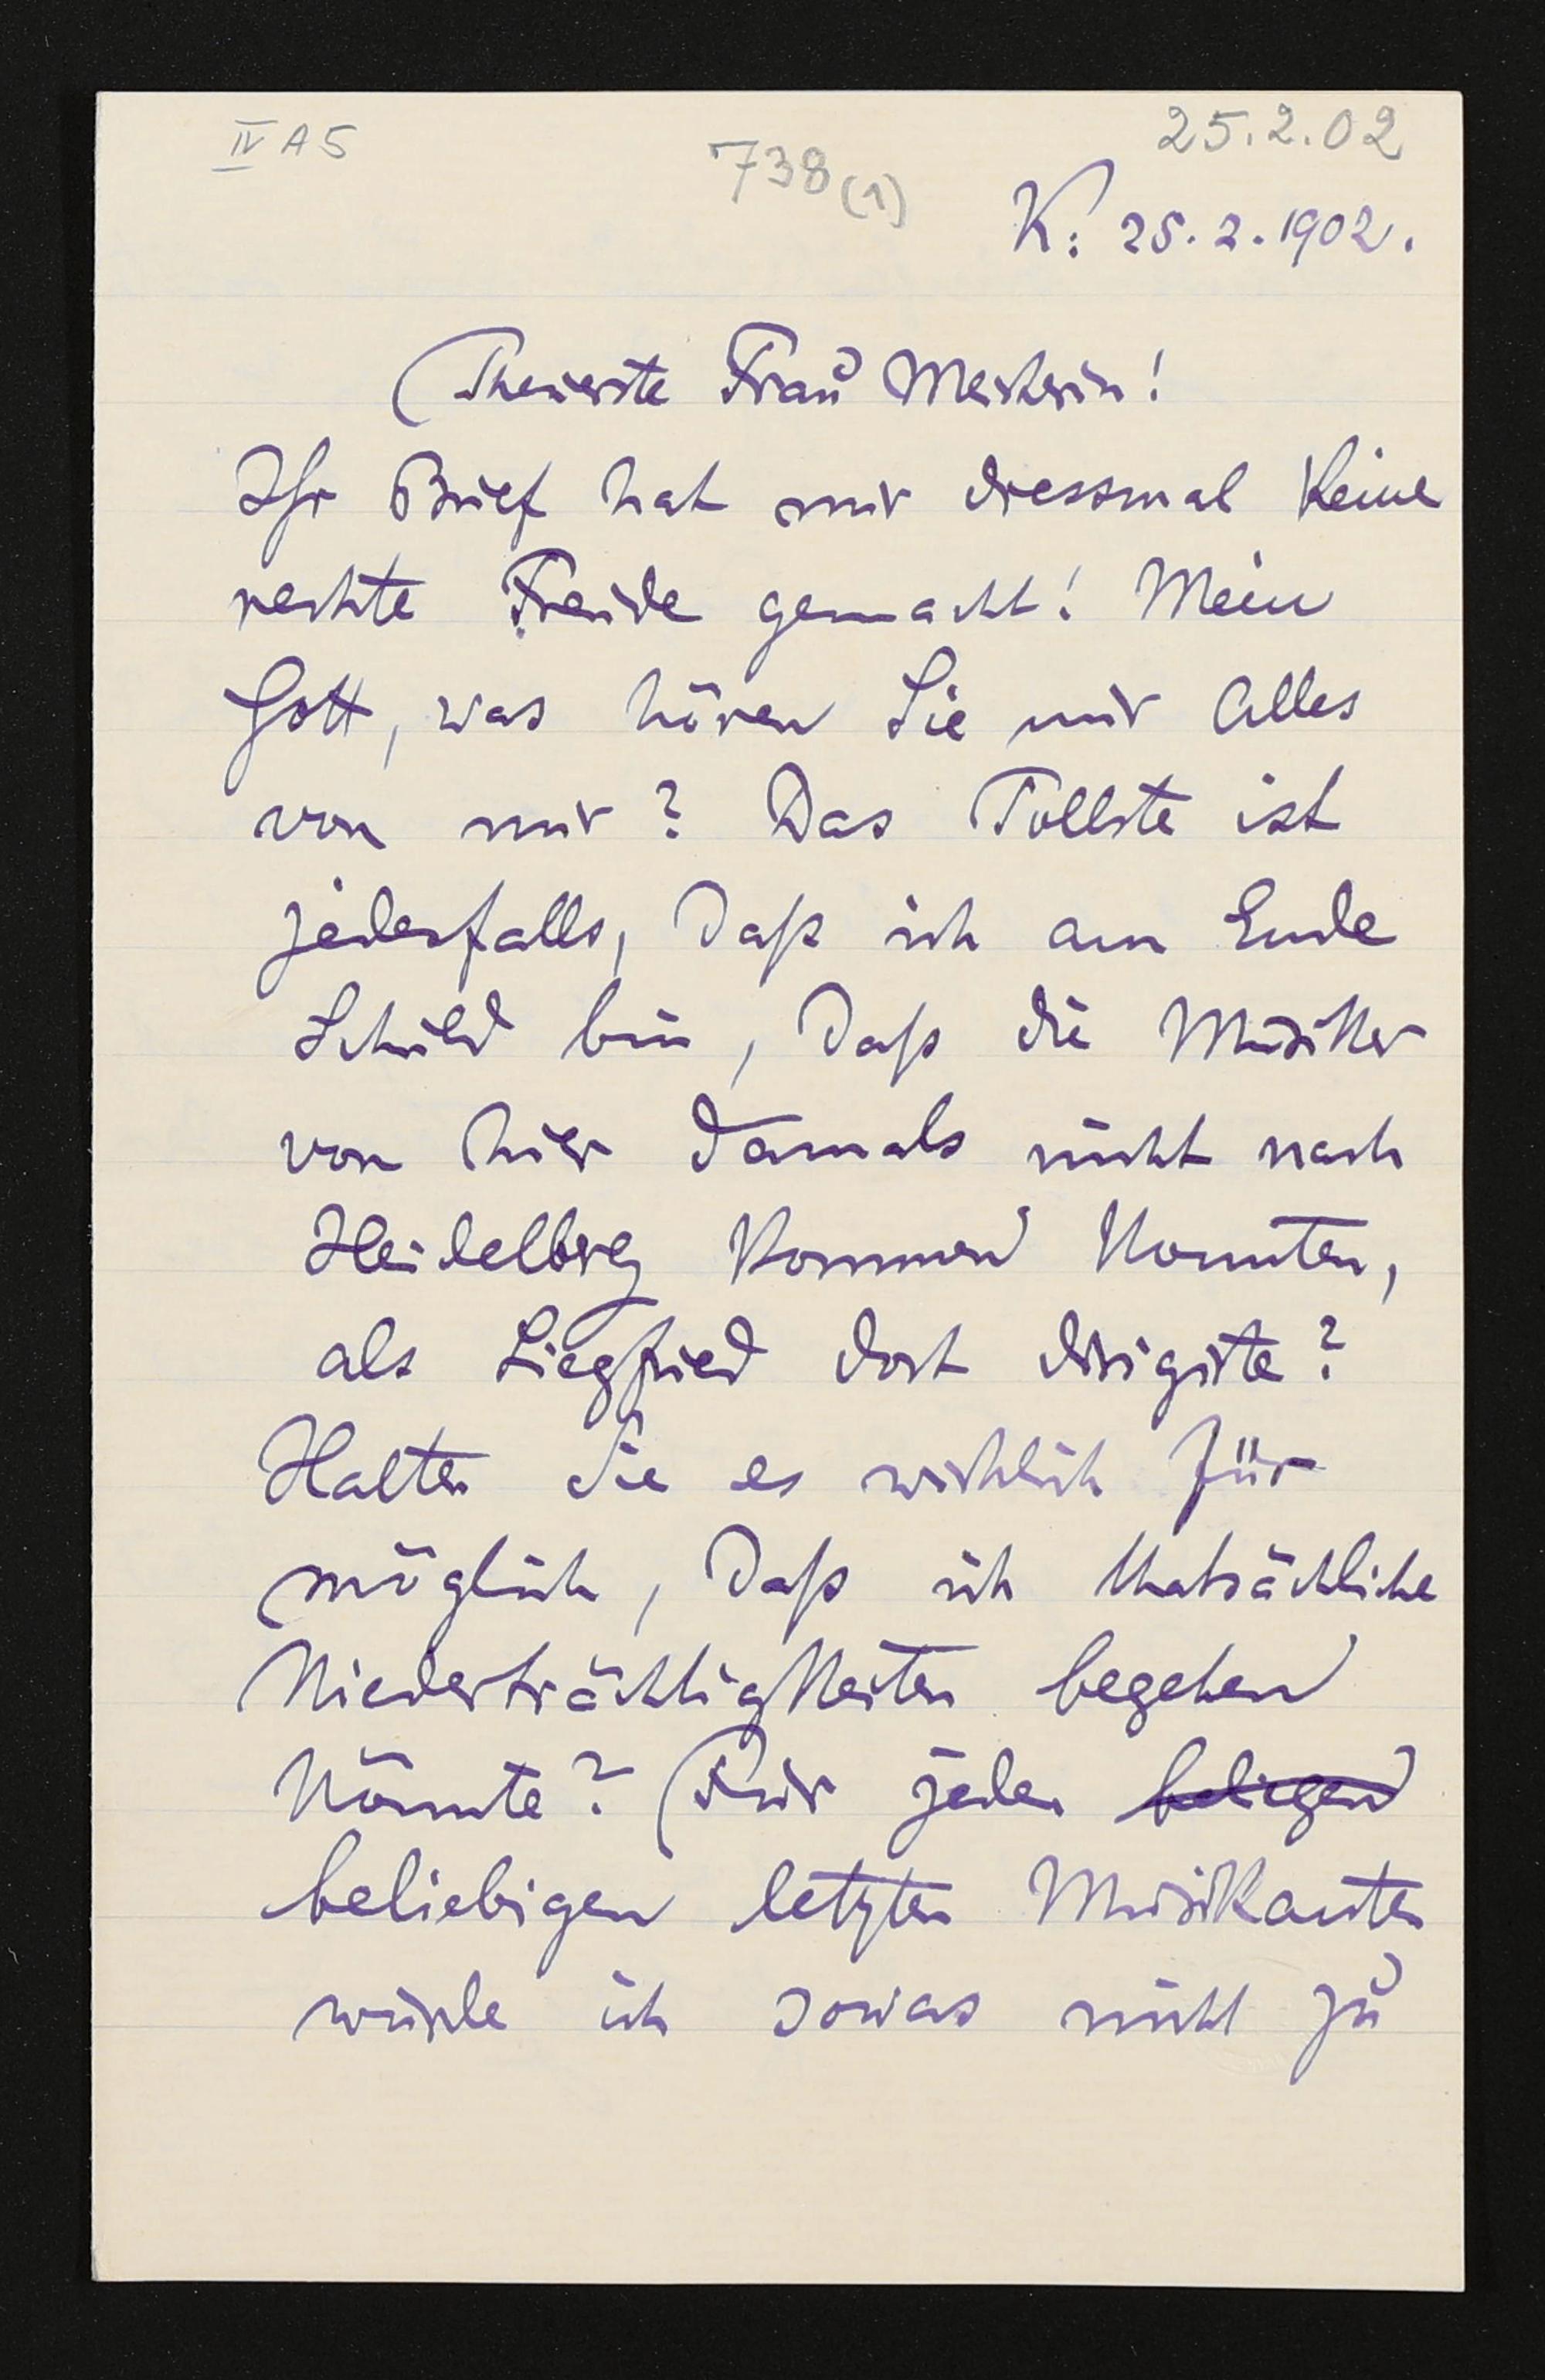 IV A 5
25.2.02
738(1)
K: 25.2.1902.
Theuerste Frau Meisterin!
Ihr Brief hat mir diessmal keine
rechte Freude gemacht! Mein
Gott, was hören Sie nur Alles
von mir? Das Tollste ist
jedenfalls, daß ich am Ende
Schuld bin, daß die Musiker
von hier damals nicht nach
Heidelberg kommen konnten,
als Siegfried dort dirigirte?
Halten Sie es wirklich für
möglich, daß ich thatsächliche
Niederträchtigkeiten begehen
könnte? Für jeden beliegen
beliebigen letzten Musikanten
würde ich sowas nicht zu